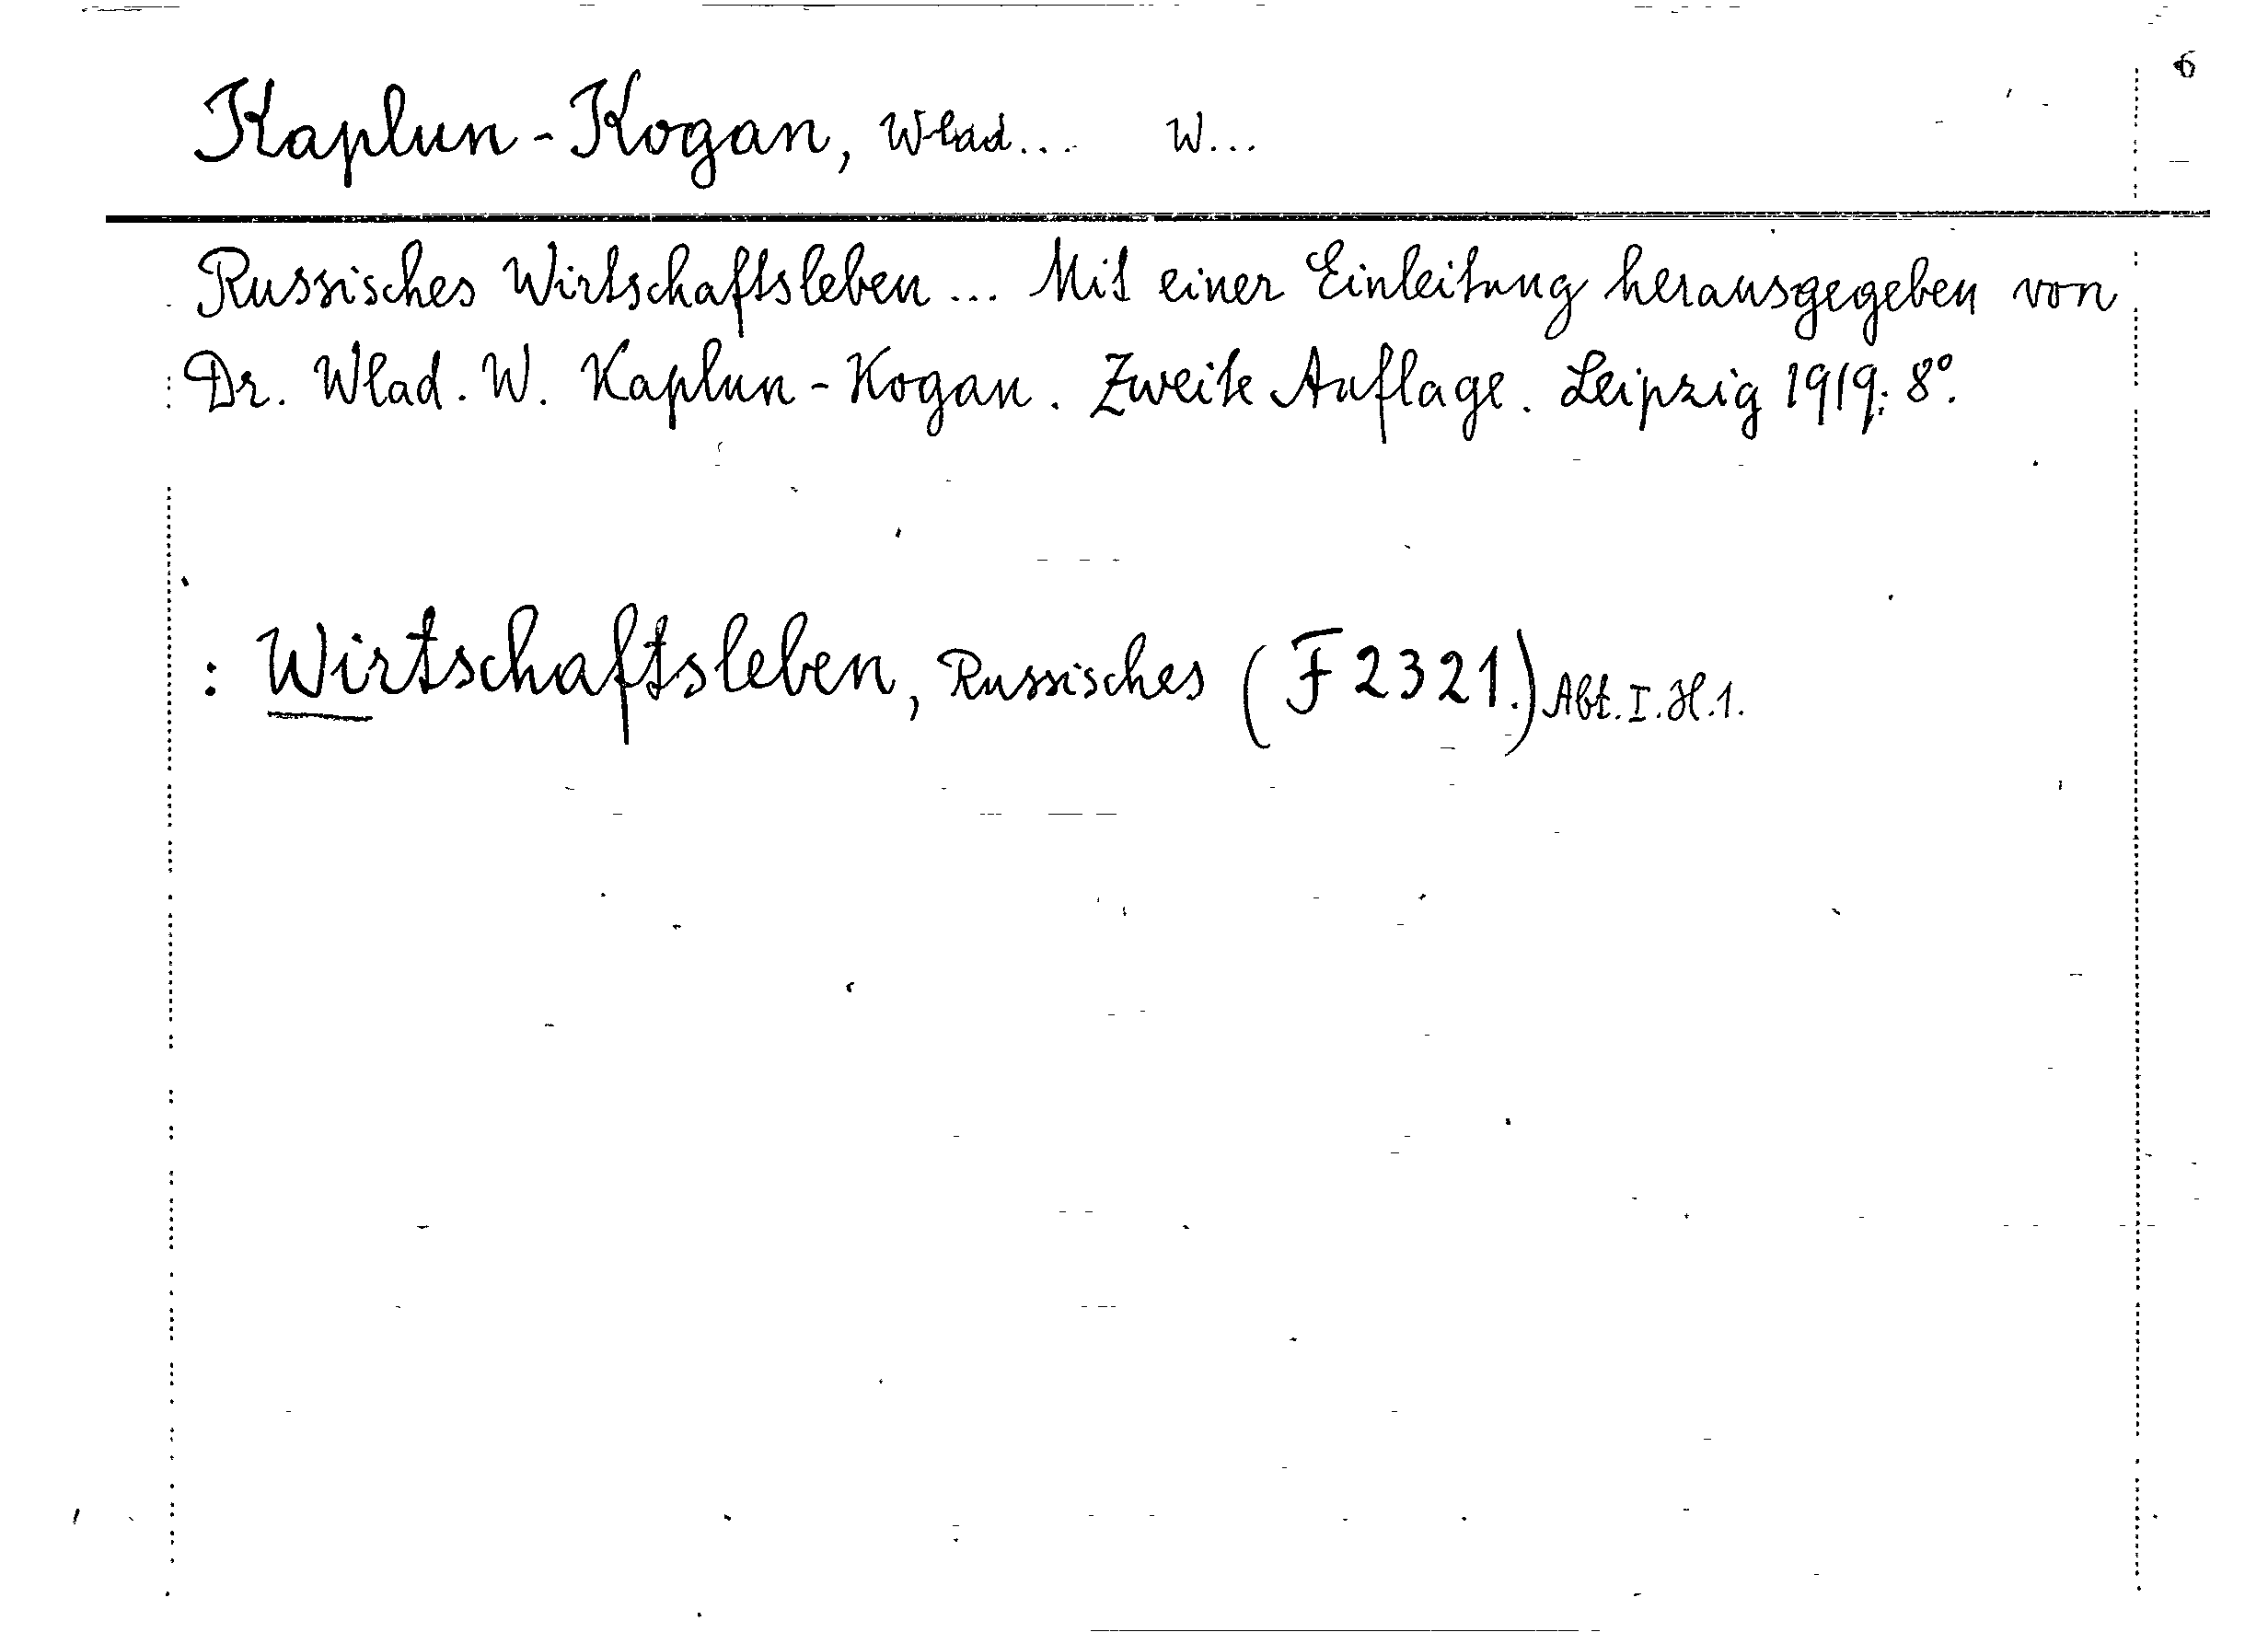 6
Kaplun-Kogan, Wlad... W...
Russisches Wirtschaftsleben... Mit einer Einleitung herausgegeben von
Dr. Wlad. W. Kaplun-Kogan. Zweite Auflage. Leipzig 1919. 8°.
: Wirtschaftsleben, Russisches (F 2321.) Abt. I. H. 1.